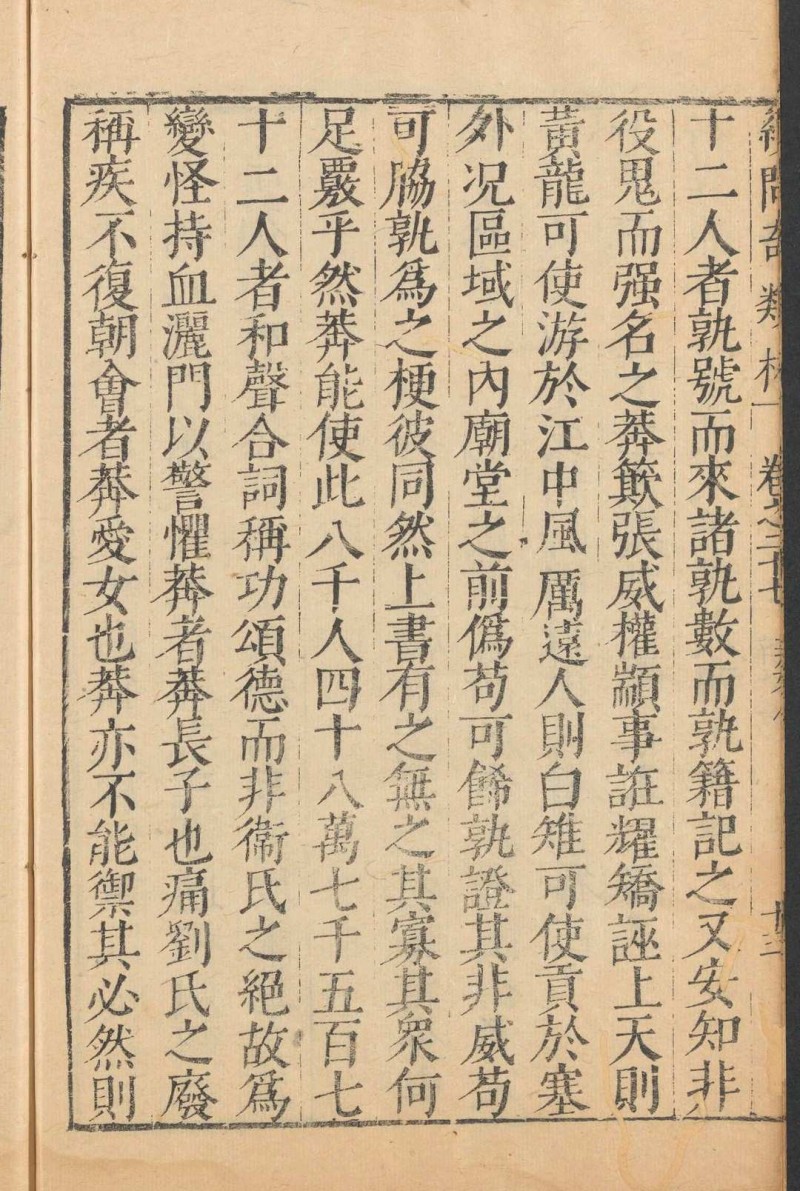 問奇類林 卷之二十七
十二人者孰號而來諸孰數而孰籍記之又安知非
役鬼而强名之莽欺張威權顓事誑耀矯誣上天則
黃龍可使游於江中風厲遠人則白雉可使貢於塞
外况區域之內廟堂之前僞苟可餙孰證其非威苟
可脇孰爲之梗彼同然上書有之無之其寡其衆何
足覈乎然莽能使此八千人四十八萬七千五百七
十二人者和聲合詞稱功頌德而非衞氏之絕故爲
變怪持血灑門以警懼莽者莽長子也痛劉氏之廢
稱疾不復朝會者莽愛女也莽亦不能禦其必然則